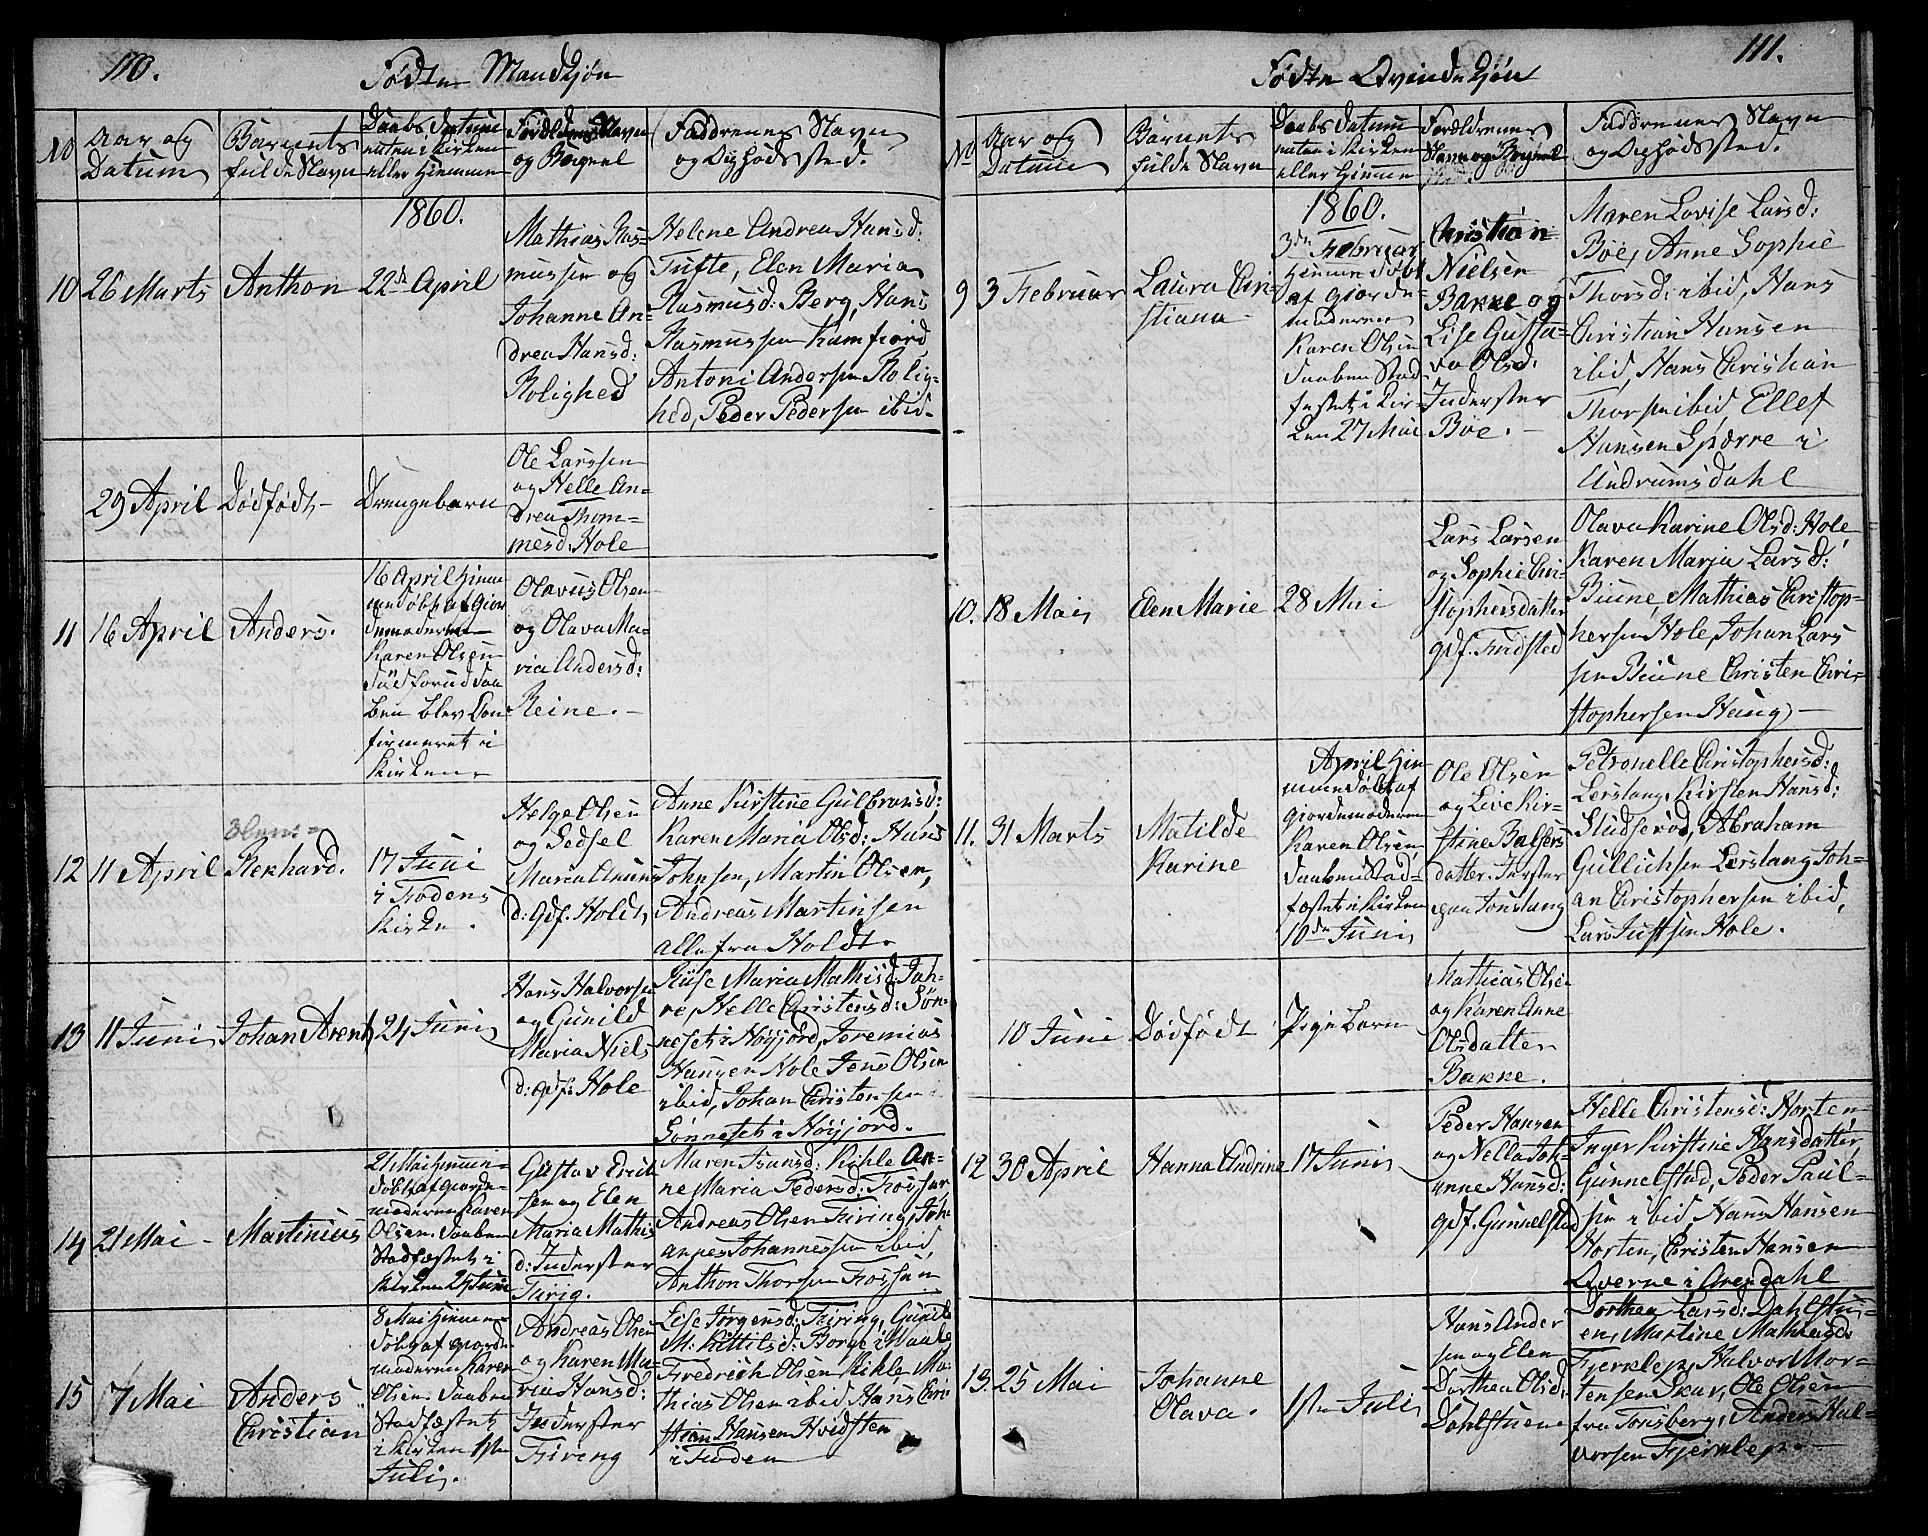 110.
Fødte Mandkjøn
No
Aar og
Datum
Barnets
fulde Navn
Daabs Datum
enten i Kirken
eller Hiemme
Forældrenes Navn
og Borgerl
Faddrenes Navn
og Opholdssted.
1860.
10
26 Marts
Anthon
22de April
Mathias Ras-
mussen og
Johanne An-
drea Hansd:
Rolighed
Helene Andrea Hansd:
Tufte, Elen Maria
Rasmusd: Berg, Hans
Rasmussen Kamfiord
Antoni Andersen Rolig-
hed, Peder Pedersen ibid-
29 April
Dødfødt-
Drengebarn
Ole Larssen
og Helle An-
drea Thom-
mesd: Hole
11
16 April
Anders.
16 April Hiem-
medøbt af Gjor-
demoderen
Karen Olsen
død forud Daa
ben blev Con
firmeret i
Kirken
Olavus Olsen
og Olava Ma-
ria Andersd:
Reine.
12
11 April
Rekhard.
17 Juni
i Fodens
Kirke.
Helge Olsen
og Sedsel
Maria
d: gdf. Holdt
Anne Kirstine Gulbransd:
Karen Maria Olsd: Hans
Johnsen, Martin Olsen,
Andreas Martinsen
alle fra Holdt
13
11 Juni
Johan Arent
24 Juni
Hans Halvorsen
og Gunild
Maria Niels
d: gdf. Hole
Maria Mathisd:
re, Helle Christensd: Søn-
neset i Høyjord, Jeremias
Hansen Hole Jens Olsen
ibid, Johan Christensen
Sønneset i Høyjord.
14
21 Mai
Martinius
21 Mai Hiemme-
døbt af Gjorde-
moderen Karen
Olsen. Daaben
Stadfæstet i
Kirken 24 Juni
Gustav Erik
sen og Elen
Maria Mathis
d: Inderster
Firing.
Maren Hansd: Kihle An-
ne Maria Pedersd: Fossan
Andreas Olsen Firing, Joh-
annes Johannessen ibid,
Anthon Thorsen Fossan
15
7 Mai
Anders
Christian
8 Mai Hiemme-
døbt af Gjorde
moderen Karen
Olsen. Daaben
Stadfæstet
i Kirken 1ste
Juli.
Andreas Olsen
og Karen Ma-
ria Hansd:
Inderster
Firing
Lise Jørgensd: Firing, Gunild
M: Kittilsd: Borge i Waale
Fredrich Olsen Kihle Ma-
thias Olsen ibid Hans Chri-
stian Hansen Hvidsten
i Foden
111.
Fødte Qvindekjøn
No
Aar og
Datum
Barnets
fulde Navn
Daabs Datum
enten i Kirken
eller Hiemme
Forældrenes
Navn og Borgerl
Faddrenes Navn
og Opholdssted.
1860.
9
3 Februar
Laura Chri-
stiana
3de Februar
Hiemmedøbt
af Gjorde-
moderen
Karen Olsen
Daaben Stad
fæstet i Kir-
ken 27 Mai
Christian
Nielsen
Bakke og
Lise Gusta-
va Olsd:
Inderster
Bøe.
Maren Lovise Larsd:
Bøe, Anne Sophie
Thorsd: ibid, Hans
Christian Hansen
ibid, Hans Christian
Thorsen ibid, Ellef
Hansen Spærre i
Andrumsdahl
10.
18 Mai
Elen Marie
28 Mai
Lars Larsen
og Sophie Chri-
stophersdatter
gdf. Fredsted
Olava Karine Olsd: Hole
Karen Maria Larsd:
Biune, Mathias Christop-
hersen Hole, Johan Lars
sen Biune Christen Chri-
stophersen Haug
11.
31 Marts
Matilde
Karine
April Hiem
mmedøbt af
Gjordemoderen
Karen Olsen,
Daaben Stad-
fæstet i Kirken
10de Juni
Ole Olsen
og Live Kir-
stine Balsers
datter Inster
Jonslang
Petronelle Christophersd:
Lerslang, Kirsten Hansd:
Studserød, Abraham
Gullichsen Lerslang Joh-
an Christophersen ibid,
Lars Justsen Hole.
10 Juni
Dødfødt
Pigebarn
Mathias Olsen
og Karen Anne
Olsdatter
Bakke.
12
30 April
Hanna Andrine
17 Juni
Peder Hansen
og Nella Joh-
anne Hansd:
gdf. Gunnelstad
Helle Christensd: Horten
Inger Kirstine Hansdatter
Gunnelstad, Peder Paul-
sen ibid, Hans Hansen
Horten, Christen Hansen
Qverne i Arendahl
13.
25 Mai
Johanne
Olava.
1ste Juli
Hans Ander
sen og Elen
Dorthea Olsd:
Dahlstuene
Dorthea Larsd: Dahlstu-
en, Martine Mathiasd:
Fjerklep, Halvor Mor-
tensen Skar, Ole Olsen
fra Tønsberg, Anders Hal-
vorsen Fjerklep.